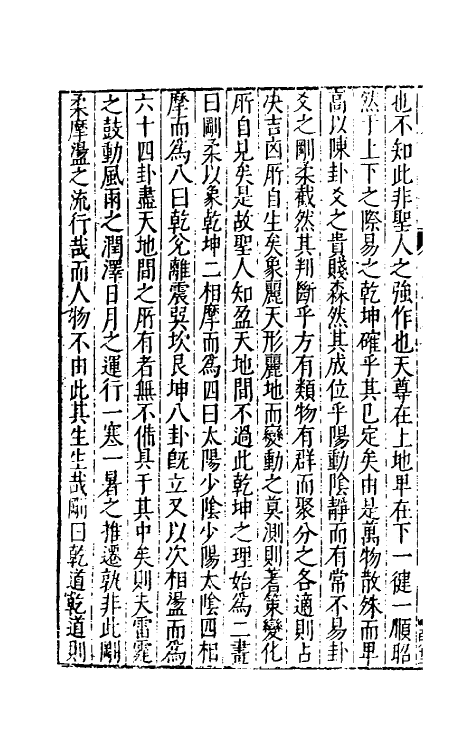 也不知此非聖人之強作也天尊在上地卑在下一健一順昭
然于上下之際易之乾坤確乎其已定矣由是萬物散殊而卑
高以陳卦爻之貴賤森然其成位乎陽動陰靜而有常不易卦
爻之剛柔截然其判斷乎方有類物有群而聚分之各適則占
决吉凶所自生矣象麗天形麗地而變動之莫測則蓍策變化
所自見矣是故聖人知盈天地間不過此乾坤之理始為二畫
曰剛柔以象乾坤二相摩而為四曰太陽少陰少陽太陰四相
摩而為八曰乾兊離震巽坎艮坤八卦既立又以次相盪而為
六十四卦盡天地間之所有者無不備具于其中矣則夫雷霆
之鼓動風雨之潤澤日月之運行一寒一暑之推遷孰非此剛
柔摩盪之流行哉而人物不由此其生生哉剛曰乾道乾道則